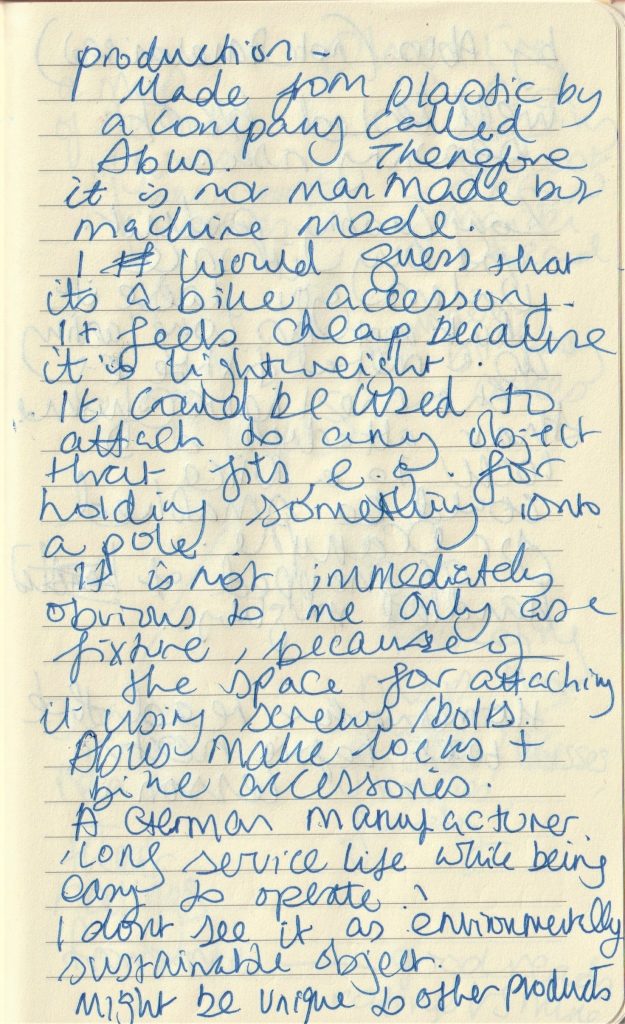 production -
Made from plastic by
a company called
Abus. Therefore
it is not man made but
machine made.
I would guess that
its a bike accessory.
It feels cheap because
it is lightweight.
It could be used to
attach to any object
that fits, e.g. for
holding something onto
a pole.
It is not immediately
obvious to me only as a
fixture, because of
the space for attaching
it using screws/bolts.
Abus make locks +
bike accessories.
A German manufacturer.
'Long service life while being
easy to operate.'
I dont see it as environmentally
sustainable object.
Might be unique to other products